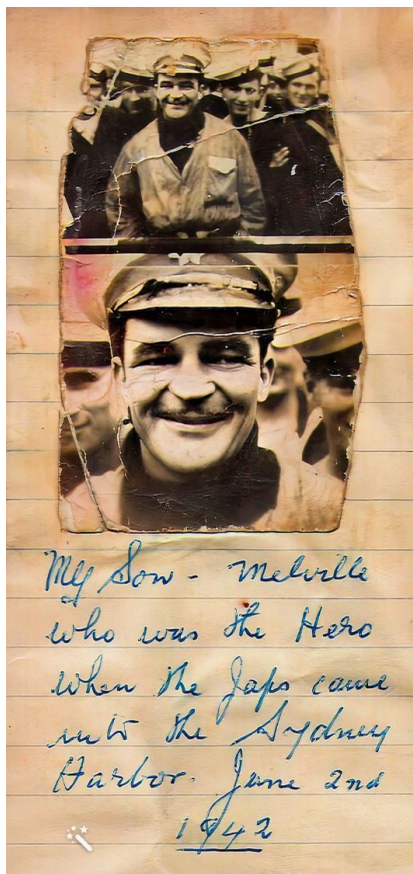 My Son - Melville
who was the Hero
when the Japs came
into the Sydney
Harbor. June 2nd
1942